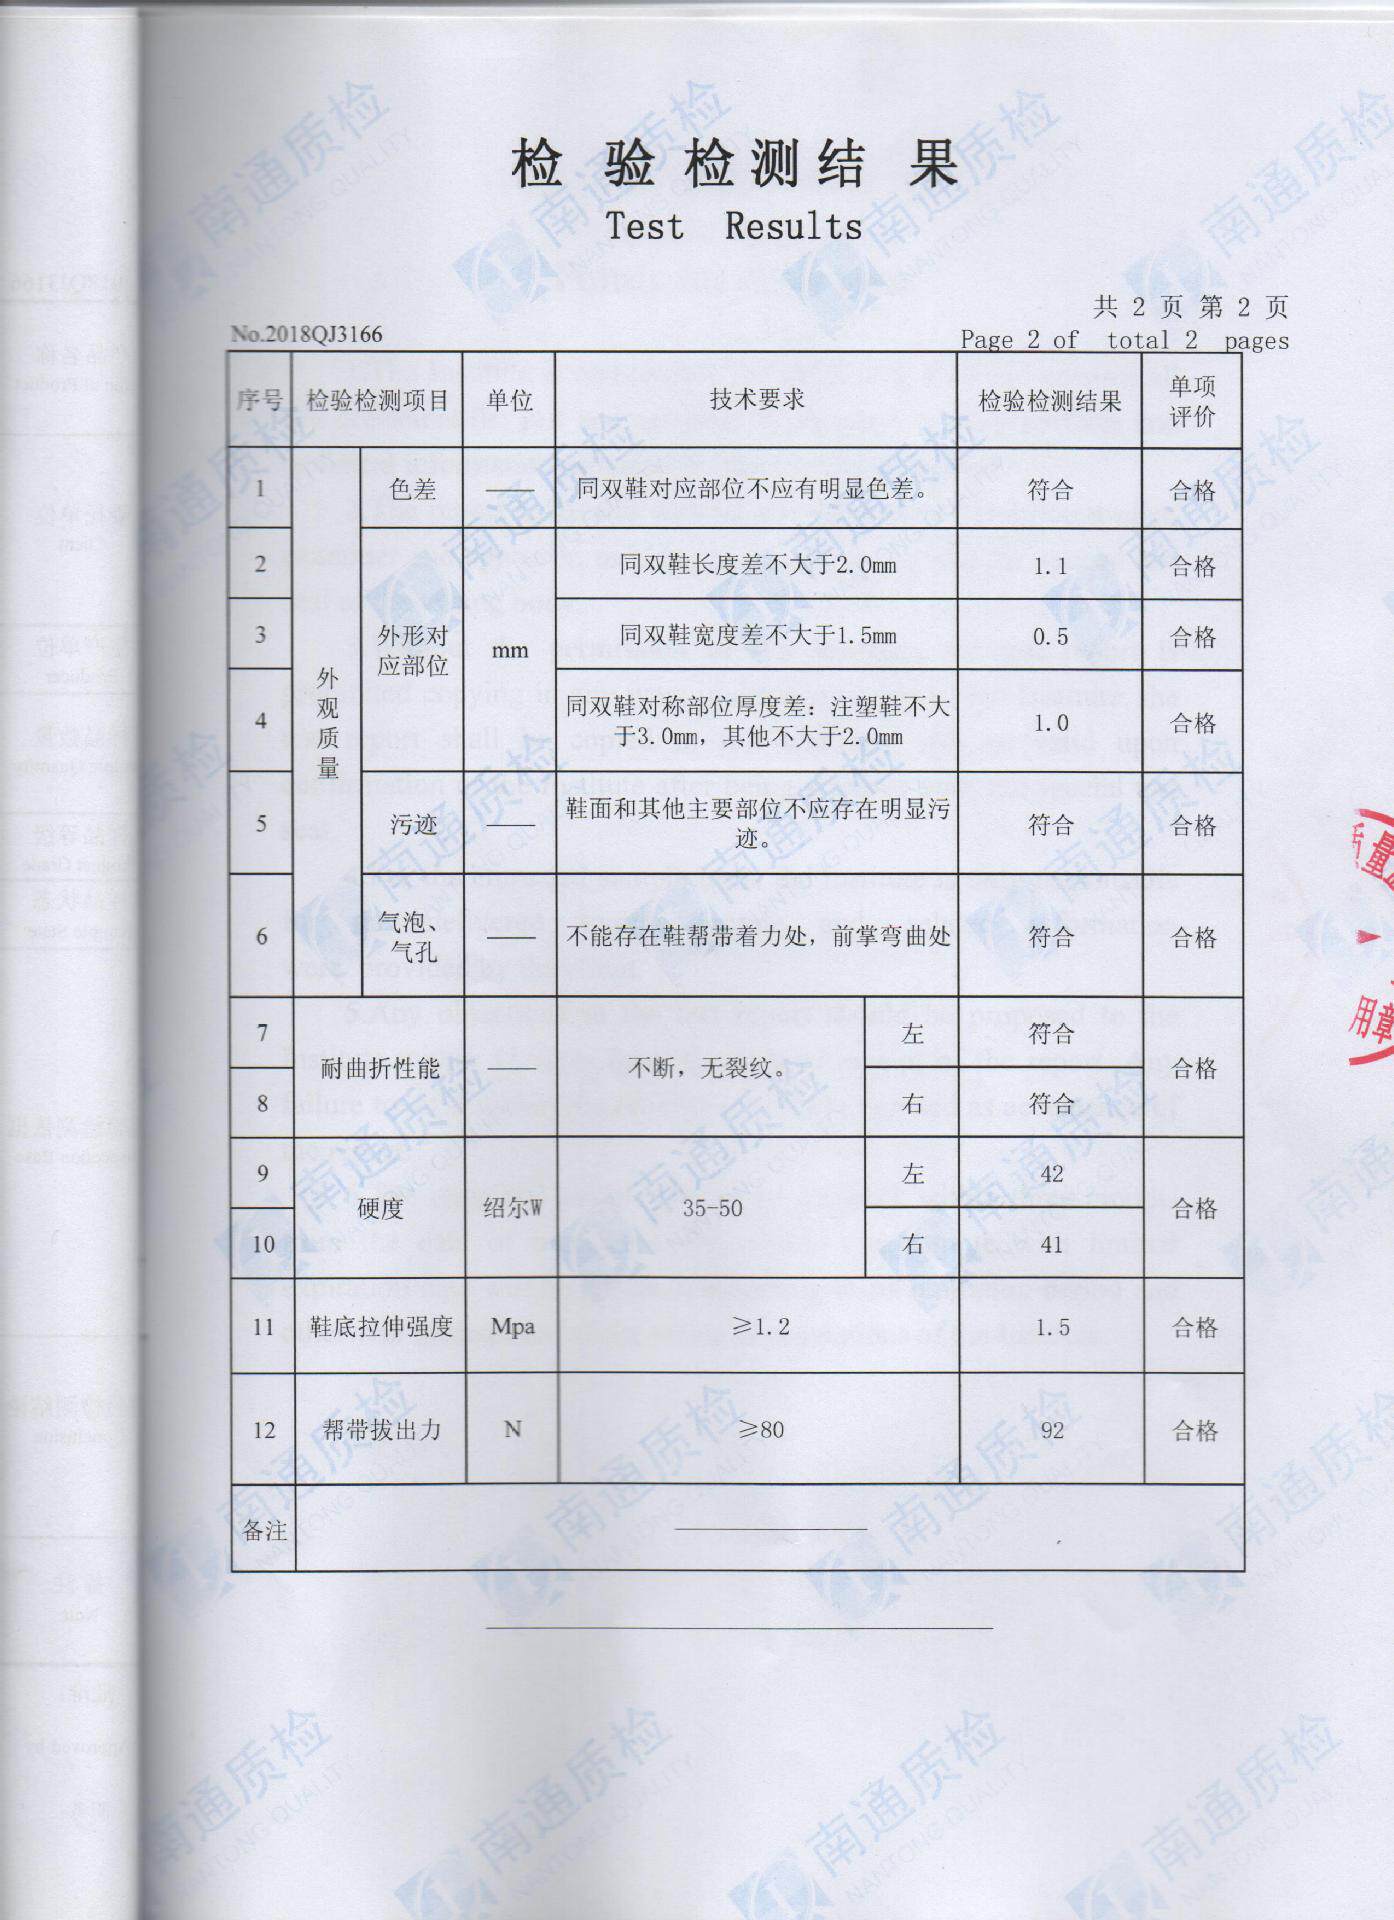 检验检测结果
Test Results
共 2 页 第 2 页
No.2018QJ3166
Page 2 of total 2 pages
序号 检验检测项目 单位 技术要求 检验检测结果 单项评价
1 外观质量 色差 —— 同双鞋对应部位不应有明显色差。 符合 合格
2 外形对应部位 mm 同双鞋长度差不大于2.0mm 1.1 合格
3 同双鞋宽度差不大于1.5mm 0.5 合格
4 同双鞋对称部位厚度差：注塑鞋不大
于3.0mm，其他不大于2.0mm 1.0 合格
5 污迹 —— 鞋面和其他主要部位不应存在明显污
迹。 符合 合格
6 气泡、气孔 —— 不能存在鞋帮带着力处，前掌弯曲处 符合 合格
7 耐曲折性能 —— 不断，无裂纹。 左 符合 合格
8 右 符合
9 硬度 绍尔W 35-50 左 42 合格
10 右 41
11 鞋底拉伸强度 Mpa ≥1.2 1.5 合格
12 帮带拔出力 N ≥80 92 合格
备注 ————
南通质检
NANTONG QUALITY
质量
用章